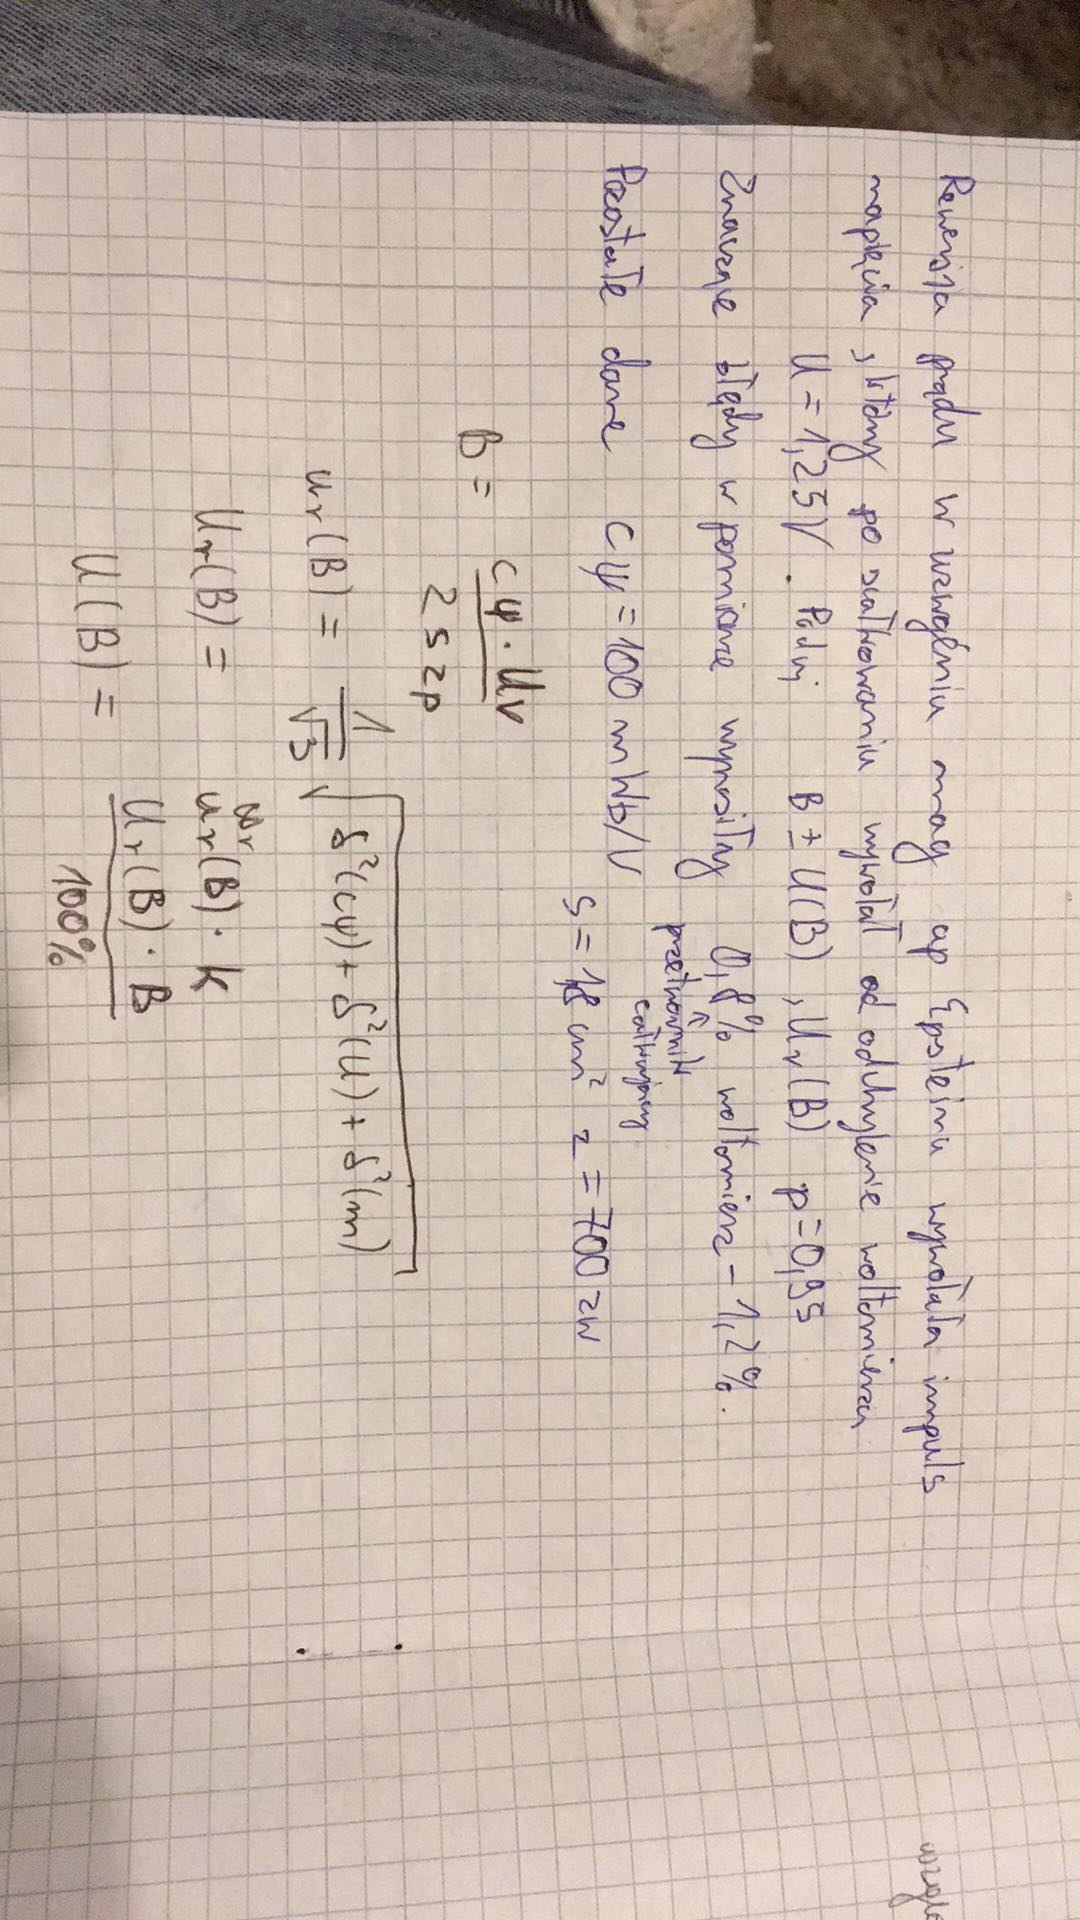 wzglę
Rewersja prądu w uzwojeniu mag ap Epsteina wywołała impuls
napięcia, który po scałkowaniu wywołał od odchylenie woltomierza
U = 1,25V. Podaj B ± U(B), Ur(B) p=0,95
Znaczące błędy w pomiarze wynosiły 0,8% woltomierz - 1,2%.
przetwornik
całkujący
Pozostałe dane cψ = 100 mWb/V s = 18 cm² z = 700 zw
B = cψ · Uv / 2 s z p
ur(B) = 1/√3 √δ²(cψ) + δ²(U) + δ²(m)
wr
Ur(B) = ur(B) · k
U(B) = Ur(B) · B / 100%